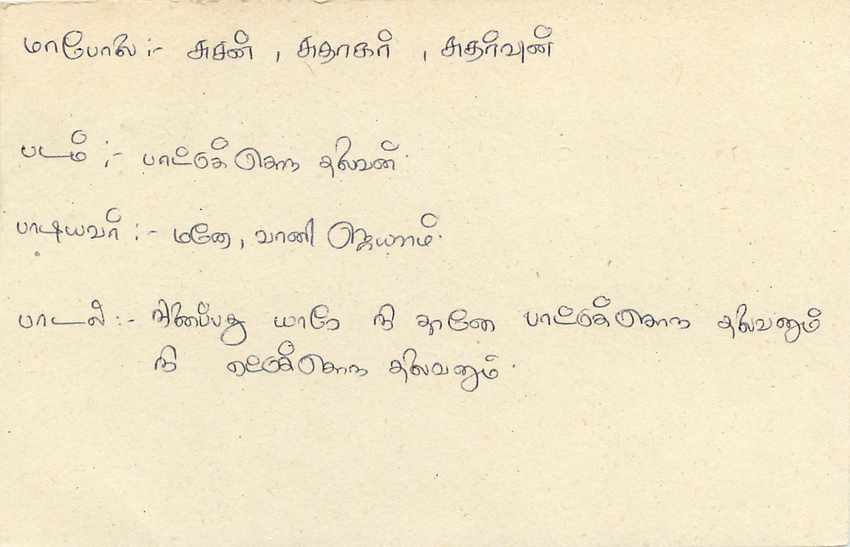 மாபோல :- சுசன் , சுதாகர் , சுதர்வுன்
படம் :- பாட்டுக்கொரு தலைவன்.
பாடியவர் :- மனோ, வாணி ஜெயராம்.
பாடல் :- நினைப்பது யாரோ நீ தானே பாட்டுக்கொரு தலைவனும்
நீ ஏட்டுக்கொரு தலைவனும்.